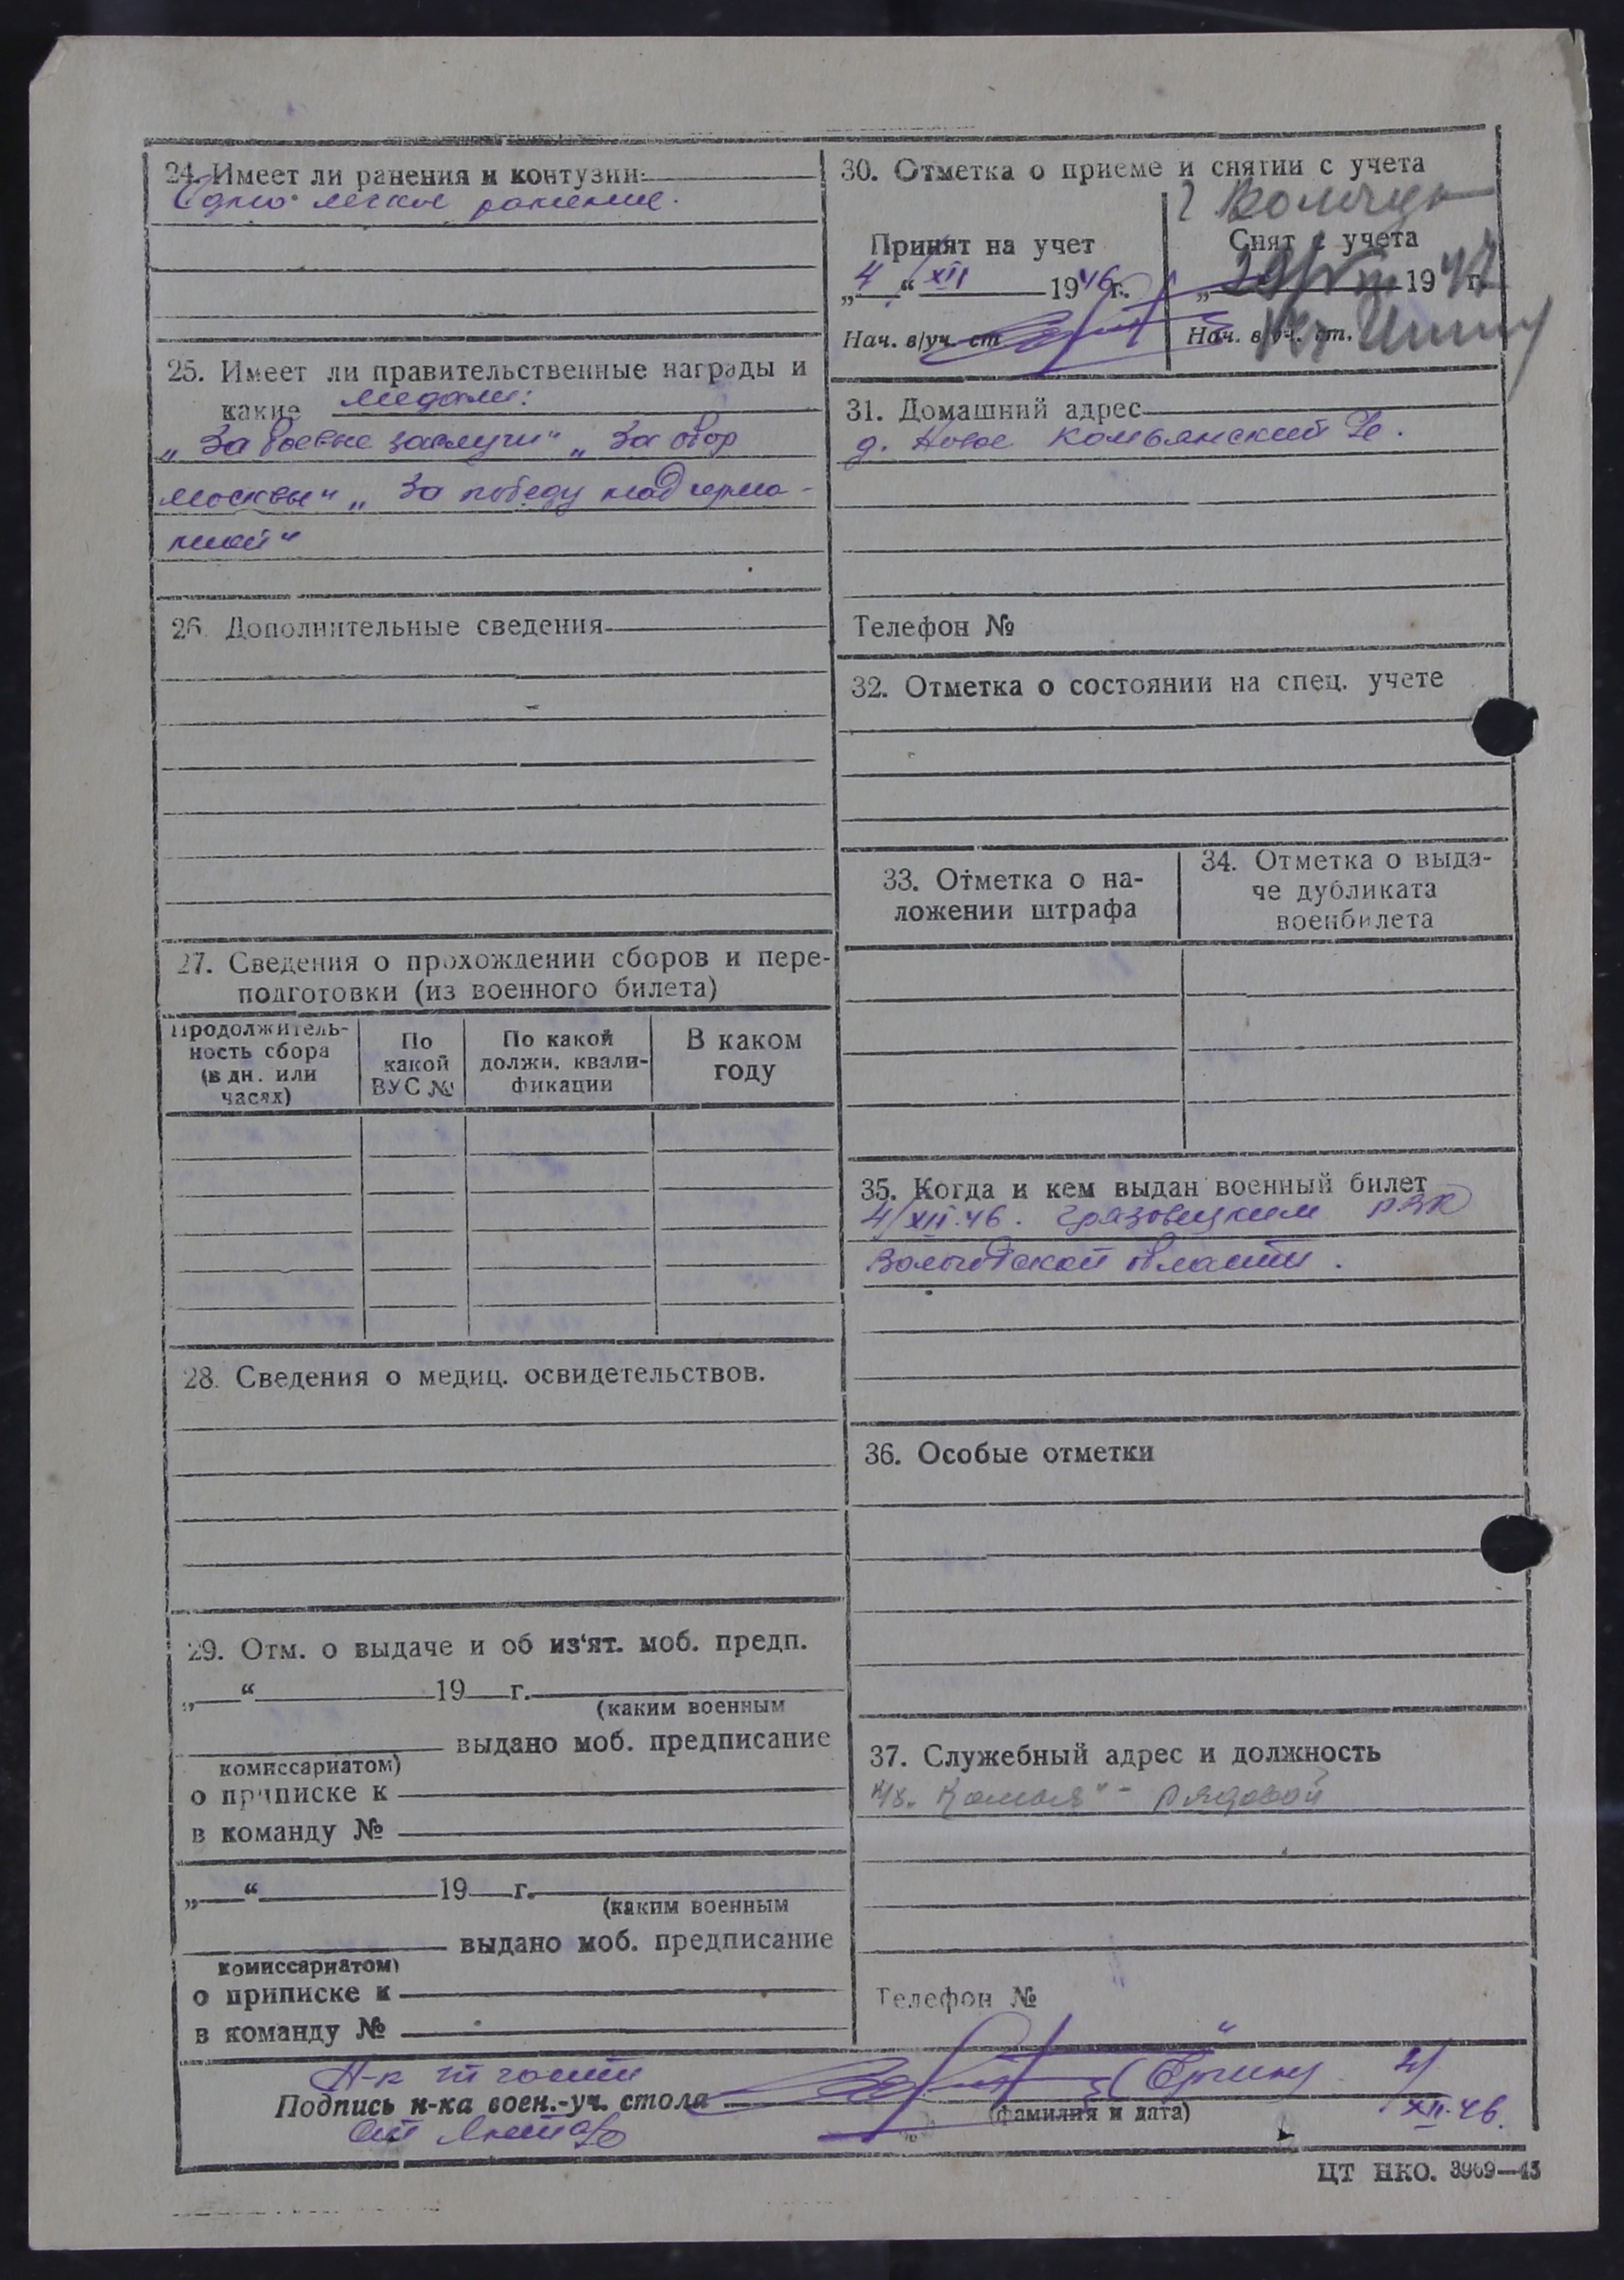 24. Имеет ли ранения и контузии:
Одно легкое ранение.
25. Имеет ли правительственные награды и
какие медали:
„За боевые заслуги“ „За обор
Москвы“ „За победу над герма-
нией“
26. Дополнительные сведения
27. Сведения о прохождении сборов и пере-
подготовки (из военного билета)
Продолжитель-
ность сбора
(в дн. или
часях)
По
какой
ВУС №
По какой
должн. квали-
фикации
В каком
году
28. Сведения о медиц. освидетельствов.
29. Отм. о выдаче и об из‘ят. моб. предп.
„ “ 19 г.
(каким военным
выдано моб. предписание
комиссариатом)
о приписке к
в команду №
„ “ 19 г.
(каким военным
выдано моб. предписание
комиссариатом)
о приписке к
в команду №
30. Отметка о приеме и снятии с учета
Принят на учет
„4“ XII 1946г.
Нач. в/уч. ст
г Вологда
Снят с учета
„29/VIII 1947 г.
Нач. в/уч. ст.
31. Домашний адрес
д. Новое Комьянский
Телефон №
32. Отметка о состоянии на спец. учете
33. Отметка о на-
ложении штрафа
34. Отметка о выда-
че дубликата
военбилета
35. Когда и кем выдан военный билет
4/XII.46. Грязовецким РВК
Вологодской области.
36. Особые отметки
37. Служебный адрес и должность
Комья“ - рядовой
Телефон №
Н-к III части
Подпись н-ка воен.-уч. стола
(фамилия и дата)
4/XII.46.
ЦТ НКО. 3969—45